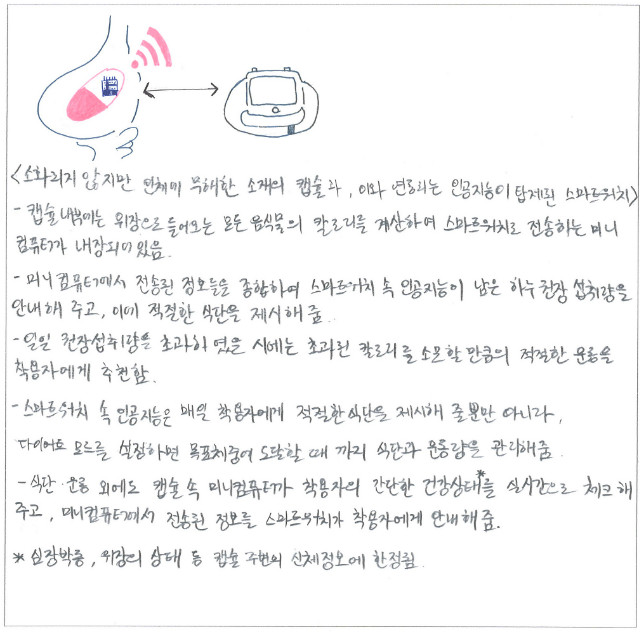 <소화되지 않지만 인체에 무해한 소재의 캡슐과, 이와 연동되는 인공지능이 탑재된 스마트워치>
- 캡슐 내부에는 위장으로 들어오는 모든 음식물의 칼로리를 계산하여 스마트워치로 전송하는 미니
컴퓨터가 내장되어 있음.
- 미니컴퓨터에서 전송된 정보들을 종합하여 스마트워치 속 인공지능이 남은 하루 권장 섭취량을
안내해 주고, 이에 적절한 식단을 제시해 줌.
- 일일 권장섭취량을 초과하였을 시에는 초과된 칼로리를 소모할 만큼의 적절한 운동을
착용자에게 추천함.
- 스마트워치 속 인공지능은 매일 착용자에게 적절한 식단을 제시해 줄 뿐만 아니라,
다이어트 모드를 설정하면 목표체중에 도달할 때 까지 식단과 운동량을 관리해줌.
- 식단·운동 외에도 캡슐 속 미니컴퓨터가 착용자의 간단한 건강상태*를 실시간으로 체크해
주고, 미니컴퓨터에서 전송된 정보를 스마트워치가 착용자에게 안내해 줌.
* 심장박동, 위장의 상태 등 캡슐 주변의 신체정보에 한정됨.